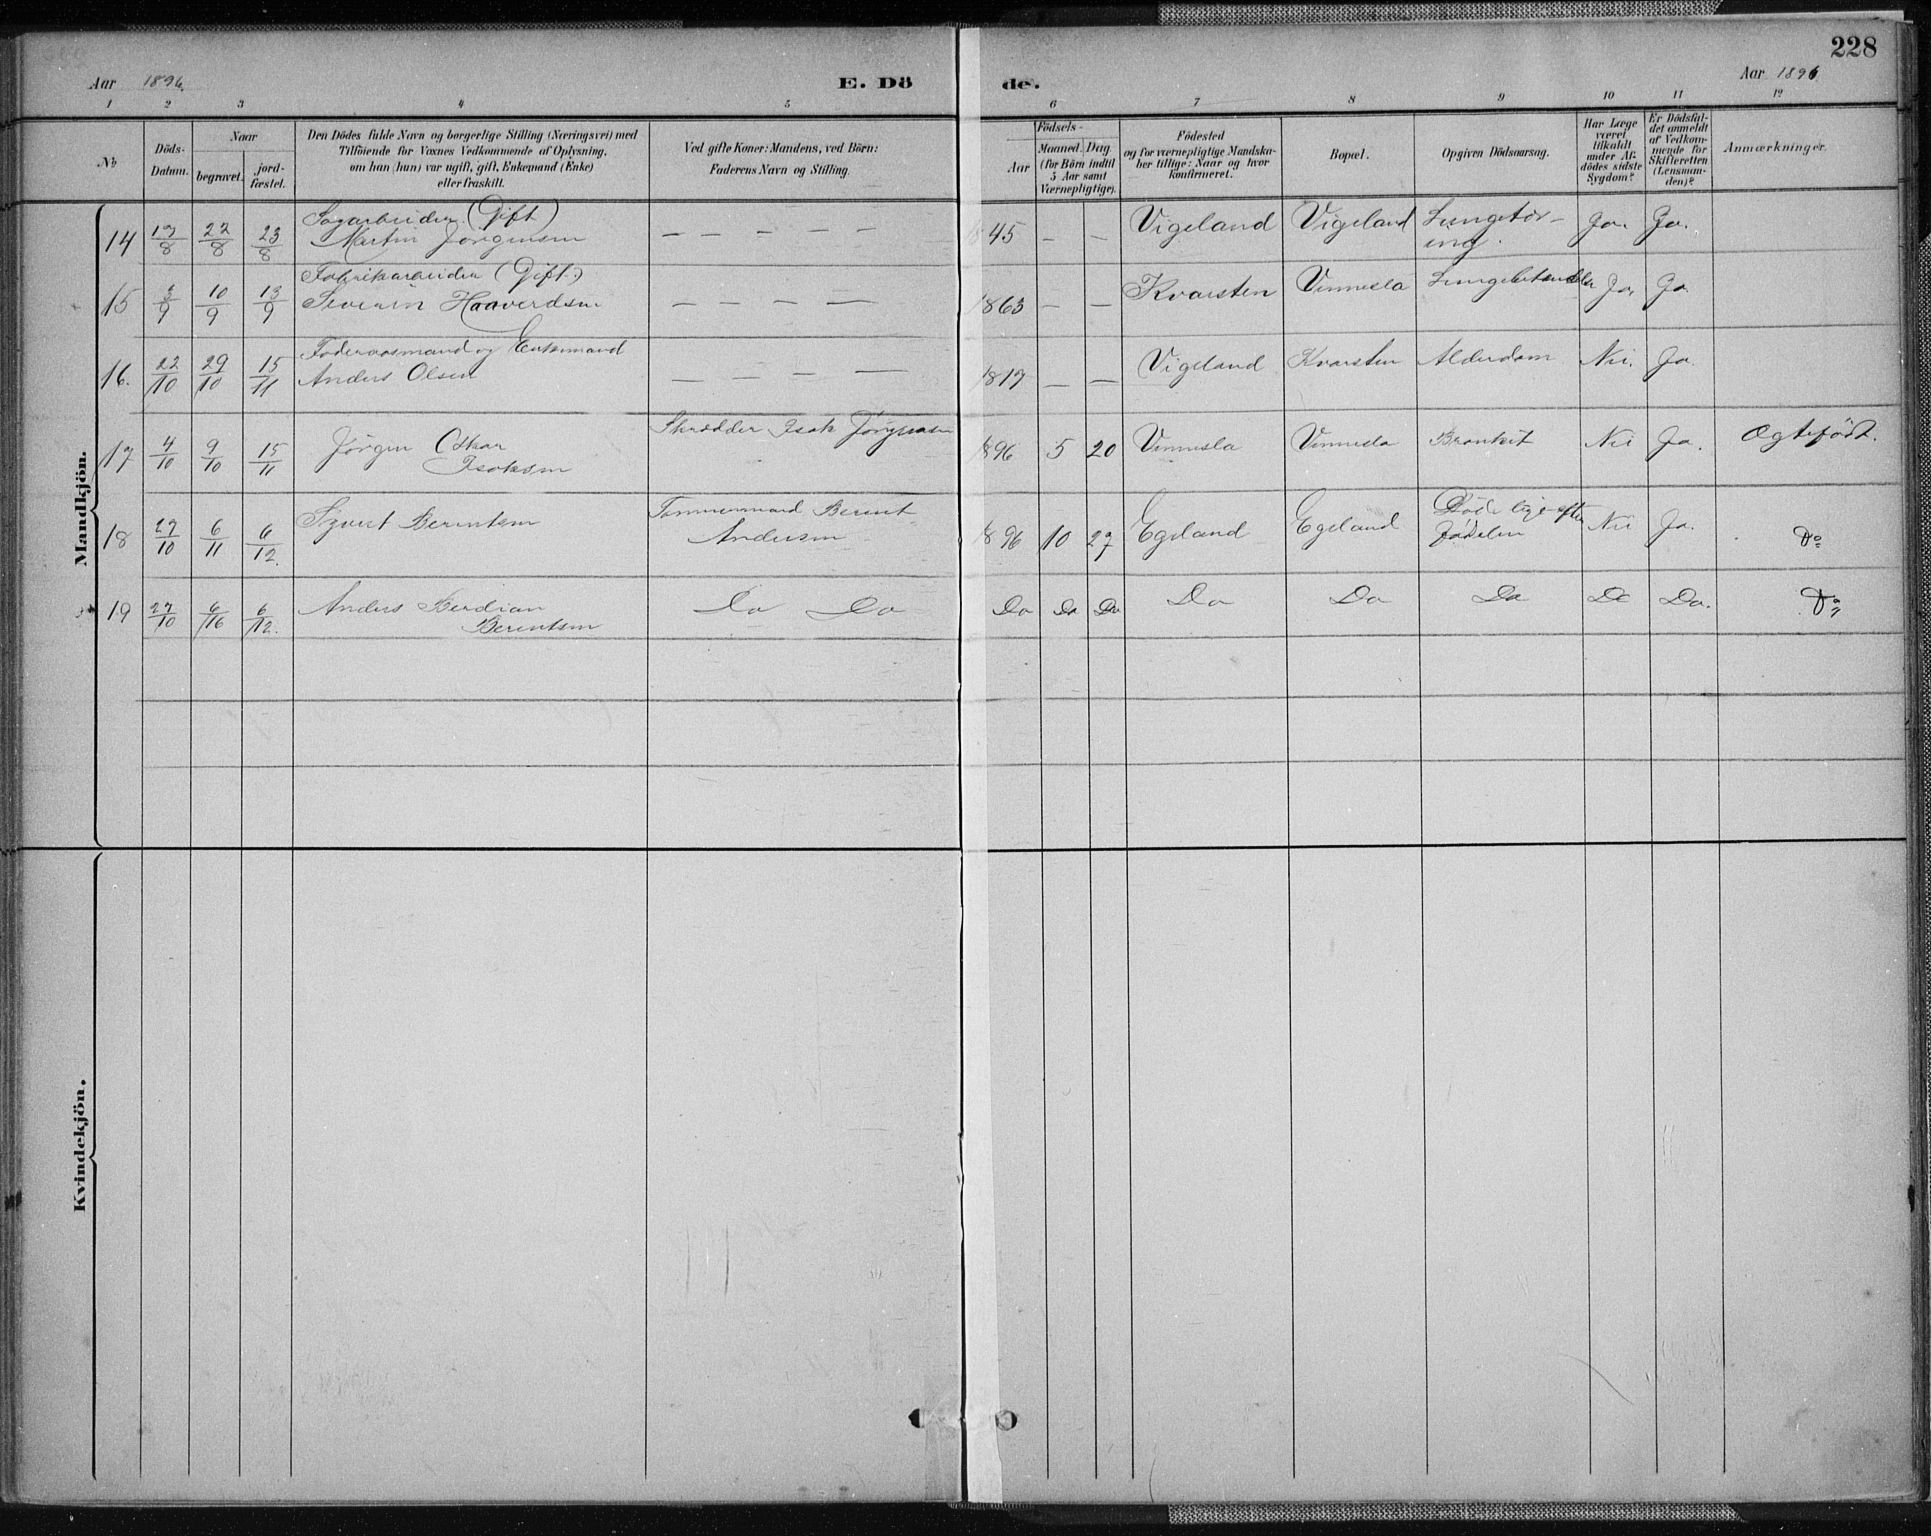 228
Aar 1896.
E. Dö
de.
Aar 1896
1 2 3 4 5 6 7 8 9 10 11 12
No
Döds-
Datum.
Naar
begravet.
jord-
fæstet.
Den Dödes fulde Navn og borgerlige Stilling (Næringsvei) med
Tilföiende for Voxnes Vedkommende af Oplysning,
om han (hun) var ugift, gift, Enkemand (Enke)
eller fraskilt.
Ved gifte Koner: Mandens, ved Börn:
Faderens Navn og Stilling.
Födsels-
Aar
Maaned. Dag
(for Börn indtil
5 Aar samt
Værnepligtige).
Födested
og for værnepligtige Mandska-
ber tillige: Naar og hvor
konfirmeret.
Bopæl.
Opgiven Dödsaarsag.
Har Læge
været
tilkaldt
under Af-
dödes sidste
Sygdom?
Er Dödsfal-
det anmeldt
af Vedkom-
mende for
Skifteretten
(Lensman-
den)?
Anmærkninger.
Mandkjön.
14 17/8 22/8 23/8 Sagarbeider (Gift)
Martin Jørgensen — — — — — 45 — — Vigeland Vigeland Lungetær-
ing. Ja. Ja.
15 3/9 10/9 13/9 Fabrikarbeider (Gift.)
Severin Haaverdsen — — — — 1863 — — Kvarsten Vennesla Ja, Ja.
16. 22/10 29/10 15/11 Føderaadsmand og Enkemand
Anders Olsen — — — — 1817 — — Vigeland Kvarsten Alderdom Nei. Ja.
17 4/10 9/10 15/11 Jørgen Oskar
Isaksen Skrædder Isak Jørgensen 1896 5 20 Vennesla Vennesla Bronkit Nei Ja. Ægtefødt.
18 27/10 6/11 6/12. Syvert Berentsen Tømmermand Berent
Andersen 1896 10 27 Egeland Egeland Døde lige efter
fødselen Nei Ja. Do
19 27/10 6/16 6/12. Anders Berdian
Berentsen Do Do Do Do Do Do Do Do Do Do. Do
Kvindekjön.